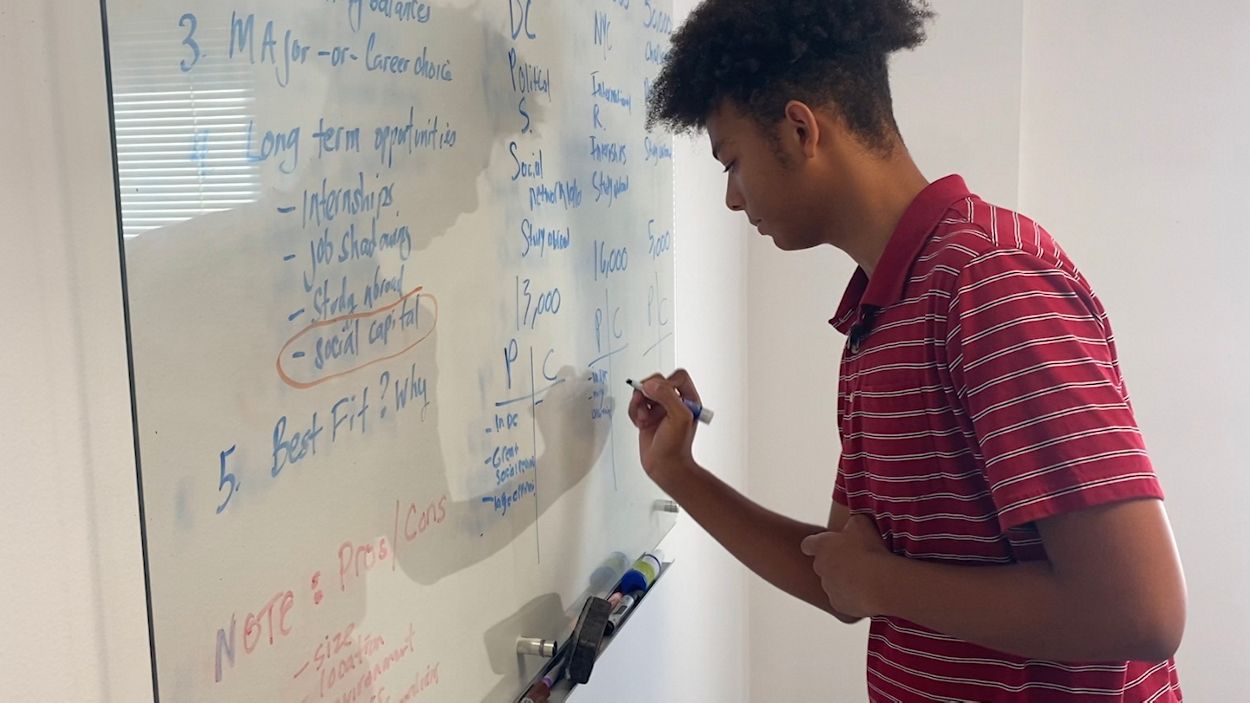 3. MAjor -or- Career choice
Long term opportunities
- Internships
- Job Shadowing
- Study abroad
- social capital
5. Best Fit? Why
NOTE: Pros/Cons
- size
- location
DC
Political
S.
Social
Study abroad
13,000
P C
- In DC
- Great
NYC
International
R.
Internships
Study abroad
16,000
P C
50,000
Study abroad
5,000
P C